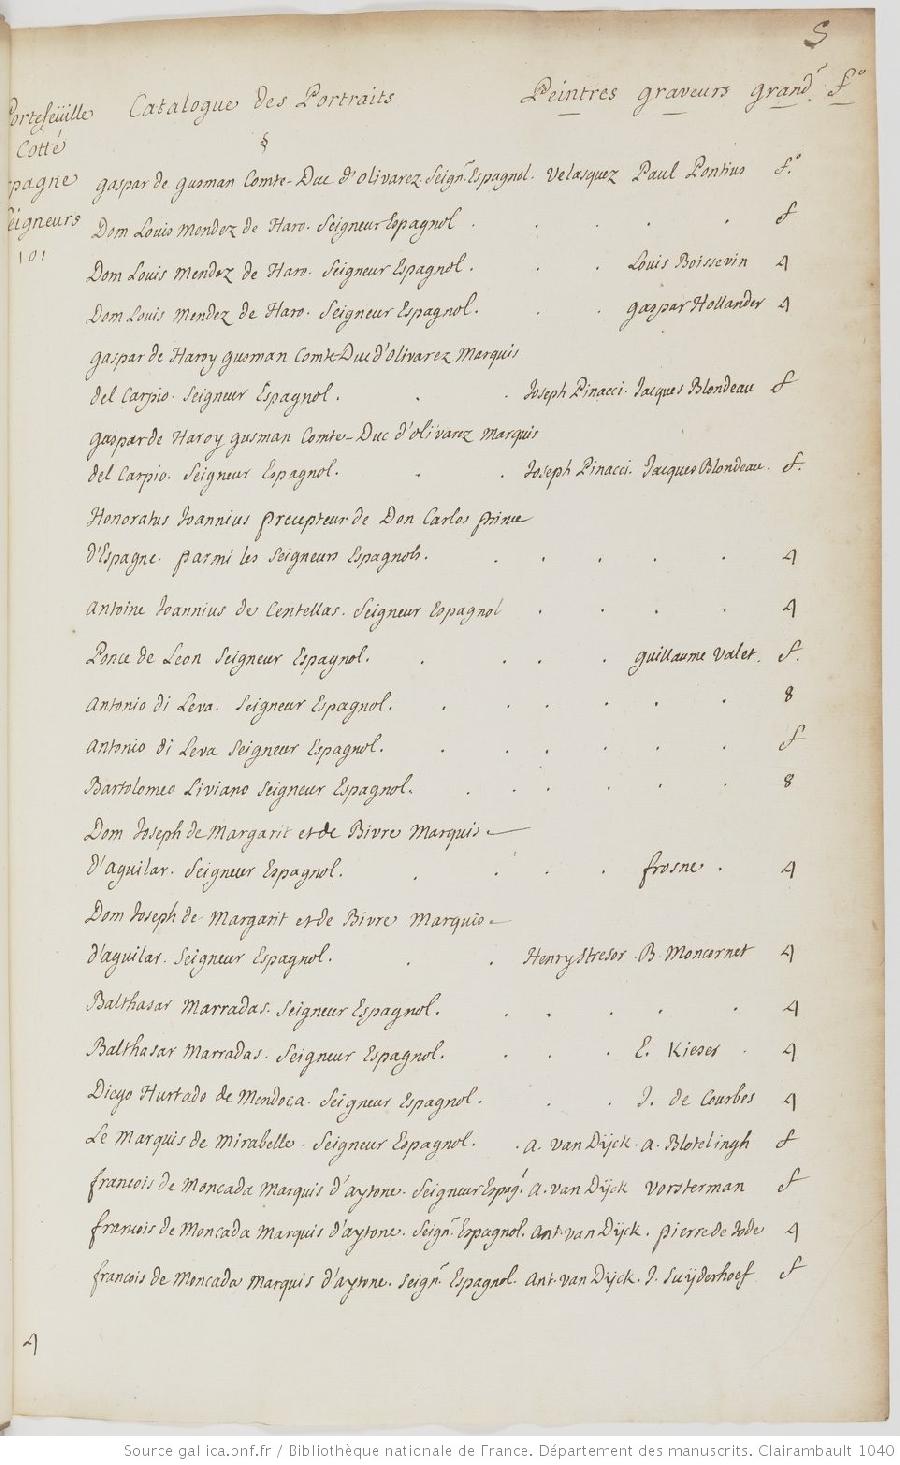 S
Portefeüille Catalogue des Portraits Peintres graveurs grandr. fo
Cotté
§
Espagne
Seigneurs
101
gaspar de gusman Comte-Duc d'olivarez Seign. Espagnol. Velasquez Paul Pontius fo.
Dom Louis Mendez de Haro. Seigneur Espagnol . . . . . f
Dom Louis Mendez de Haro. Seigneur Espagnol. . . Louis Boissevin 4
Dom Louis Mendez de Haro. Seigneur Espagnol. . . gaspar Hollander 4
gaspar de Haroy gusman Comte-Duc d'olivarez Marquis
del Carpio. Seigneur Espagnol. . . Joseph Pinacci. Jacques Blondeau f
gaspar de Haroy gusman Comte-Duc d'olivarez Marquis
del Carpio. Seigneur Espagnol. . . Joseph Pinacci. Jacques Blondeau. f.
Honoratus Joannius precepteur de Don Carlos prince
d'Espagne. parmi les Seigneurs Espagnols. . . . . . 4
Antoine Joannius de Centellas. Seigneur Espagnol . . . . 4
Ponce de Leon Seigneur Espagnol. . . . . guillaume Valet. f.
Antonio di Leva. Seigneur Espagnol. . . . . . . 8
Antonio di Leva Seigneur Espagnol. . . . . . . f
Bartolomeo Liviano Seigneur Espagnol. . . . . . . 8
Dom Joseph de Margarit et de Bivre Marquis
d'aguilar. Seigneur Espagnol. . . . . frosne . 4
Dom Joseph de Margarit et de Bivre Marquis
d'aguilar. Seigneur Espagnol. . . Henry Stresor. B. Moncornet 4
Balthasar Marradas. Seigneur Espagnol. . . . . . 4
Balthasar Marradas. Seigneur Espagnol. . . . E. Kieser . 4
Diego Hurtado de Mendoça. Seigneur Espagnol. . . J. de Courbes 4
Le Marquis de Mirabelle. Seigneur Espagnol. . A. van Dijck. A. Blotelingh f
francois de Moncada Marquis d'aytone. Seigneur Espagl. A. van Dijck Vorsterman f
francois de Moncada Marquis d'aytone. Seign. Espagnol. Ant. van Dijck. pierre de Jode 4
francois de Moncada Marquis d'aytone. Seign. Espagnol. Ant. van Dijck. J. Suijderhoef f
4
Source gallica.bnf.fr / Bibliothèque nationale de France. Département des manuscrits. Clairambault 1040